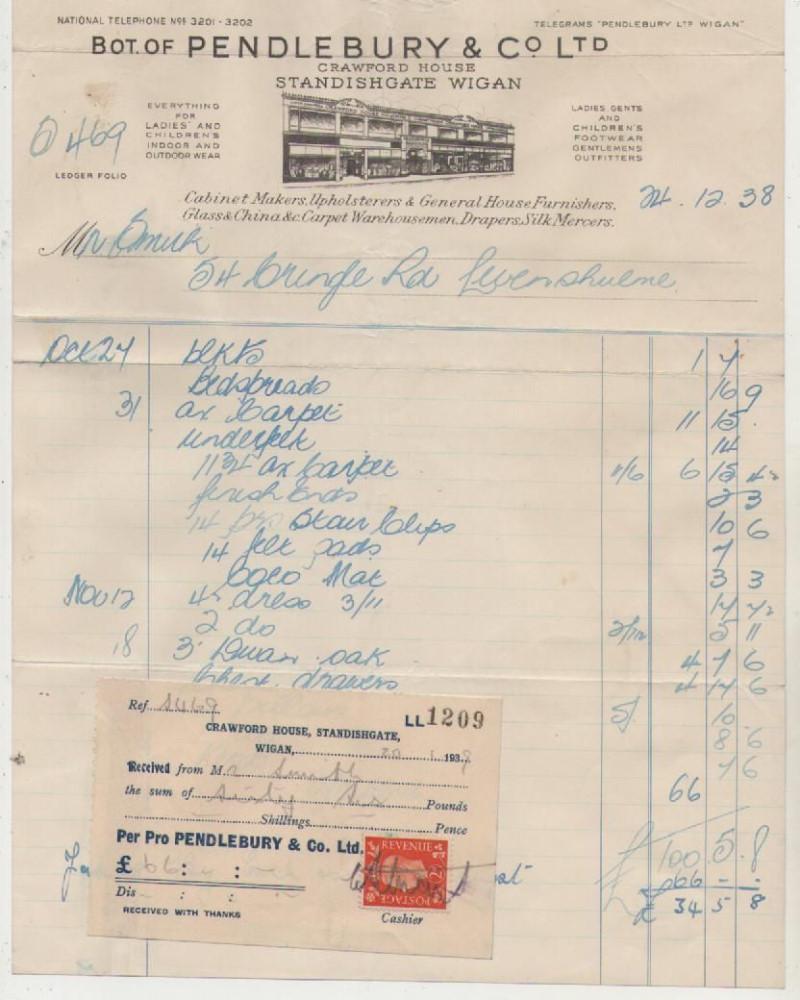 NATIONAL TELEPHONE Nos 3201 - 3202
TELEGRAMS "PENDLEBURY LTD WIGAN"
BOT. OF PENDLEBURY & Co LTD
CRAWFORD HOUSE
STANDISHGATE WIGAN
EVERYTHING
FOR
LADIES' AND
CHILDREN'S
INDOOR AND
OUTDOOR WEAR
LADIES GENTS
AND
CHILDREN'S
FOOTWEAR
GENTLEMENS
OUTFITTERS
469
LEDGER FOLIO
Cabinet Makers, Upholsterers & General House Furnishers,
Glass & China &c. Carpet Warehousemen, Drapers, Silk Mercers.
24.12.38
Mr Smith
54 Cringle Rd Levenshulme
Oct 24 blkts 1 7
Bedspreads 16 9
31 ax Carpet 11 15
underfelt 14
11 3/4 ax Carpet 11/6 6 15
finish Ends 2 3
14 prs Stair Clips 10 6
14 felt pads 7
Coco Mat 3 3
Nov 12 dress 3/11
2 do 5 11
18 oak 4 7 6
drawers 4 14 6
5/ 10
8 6
7 6
66
£ 100 5. 8
66 - -
£ 34 5 8
Ref. S469
LL 1209
CRAWFORD HOUSE, STANDISHGATE,
WIGAN, 193
Received from Mr Smith
the sum of Sixty Six Pounds
Shillings Pence
Per Pro PENDLEBURY & Co. Ltd.
£ 66 : :
Dis : :
RECEIVED WITH THANKS
REVENUE
POSTAGE
Cashier